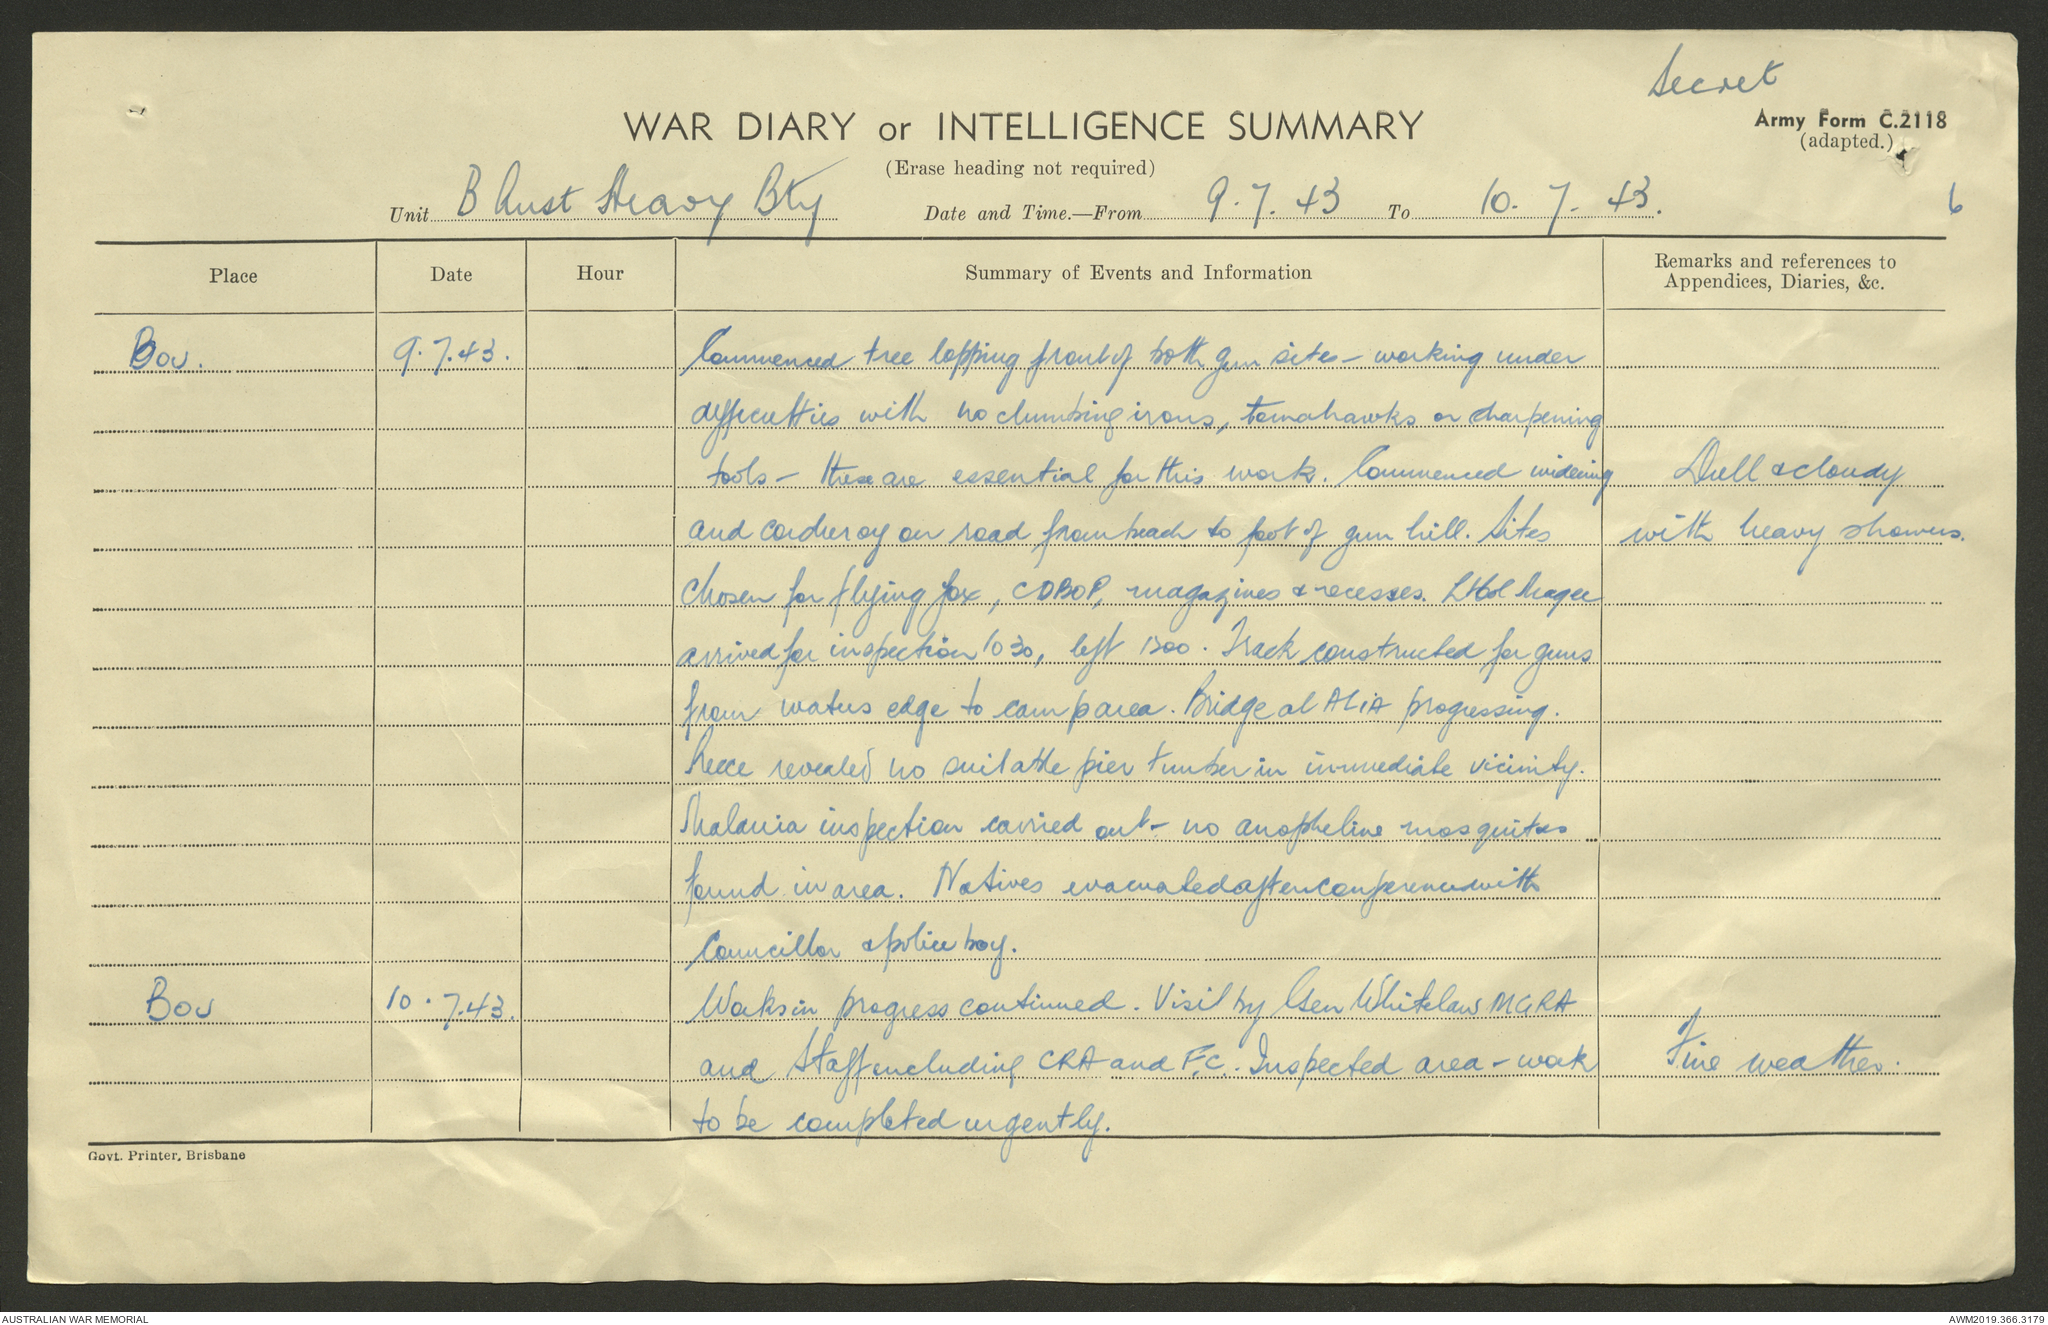 Secret
WAR DIARY or INTELLIGENCE SUMMARY
Army Form C.2118
(adapted.)
(Erase heading not required)
Unit B Aust Heavy Bty Date and Time.—From 9.7.43 To 10.7.43.
6
Place Date Hour Summary of Events and Information Remarks and references to
Appendices, Diaries, &c.
Bou. 9.7.43. Commenced tree lopping front of both gun sites - working under
difficulties with no climbing irons, tomahawks or sharpening
tools - these are essential for this work. Commenced widening Dull & cloudy
and corduroy on road from beach to foot of gun hill. Sites with heavy showers.
chosen for flying fox, COBOP, magazines & recesses. Lt Col Magee
arrived for inspection 1030, left 1300. Track constructed for guns
from waters edge to camp area. Bridge at ALIA progressing.
Recce revealed no suitable pier timber in immediate vicinity.
Malaria inspection carried out - no anopheline mosquitos
found in area. Natives evacuated after conference with
Councillor & police boy.
Bou 10.7.43. Works in progress continued. Visit by Gen Whitelaw MGRA
and Staff including CRA and F.C. Inspected area - work Fine weather.
to be completed urgently.
Govt. Printer, Brisbane
AUSTRALIAN WAR MEMORIAL AWM2019.366.3179